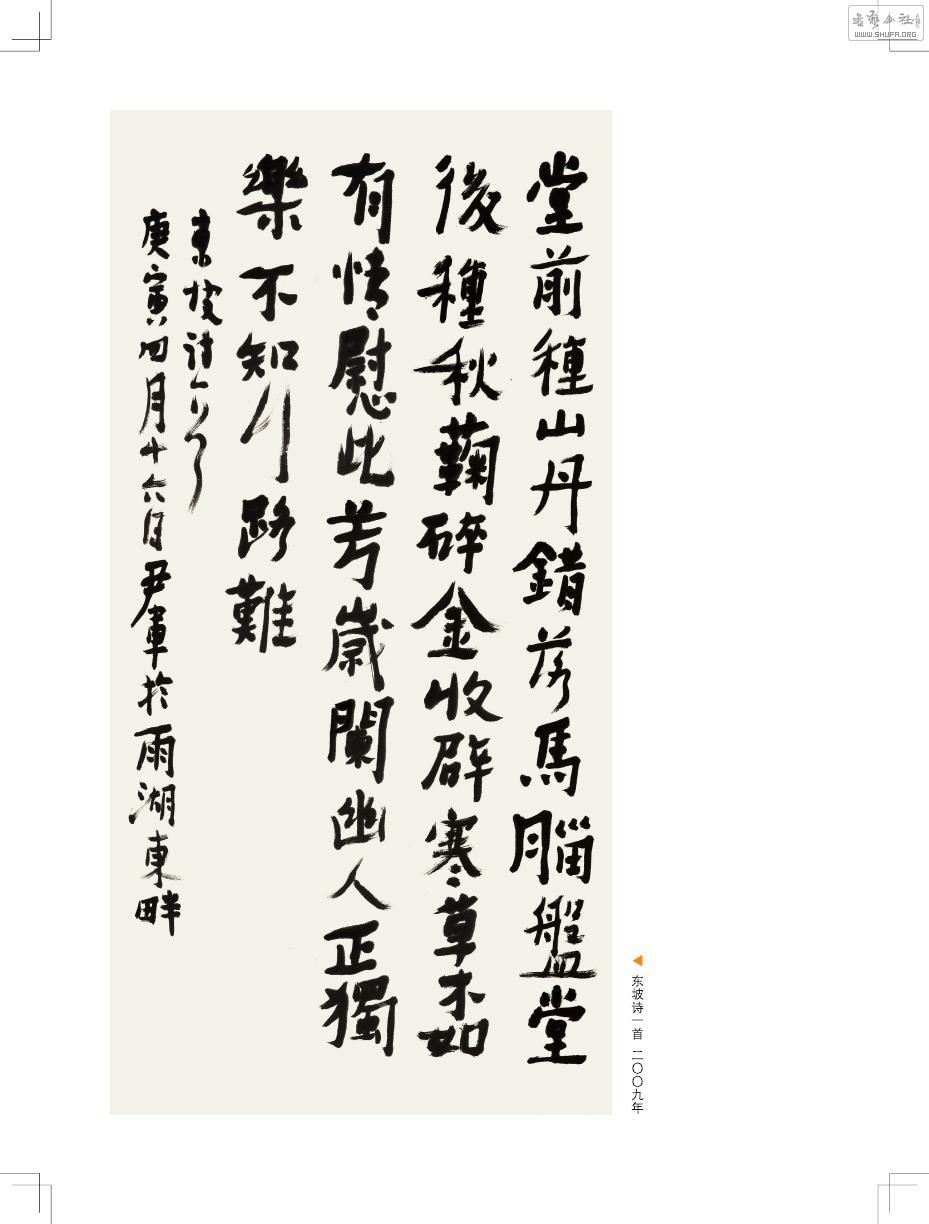 堂前種山丹錯落馬腦盤堂
後種秋菊碎金收辟寒草木如
有情慰此芳歲闌幽人正獨
樂不知行路難
東坡詩一首
庚寅四月十六日尹軍於雨湖東畔
东坡诗一首 二〇〇九年
WWW.SHUFA.ORG